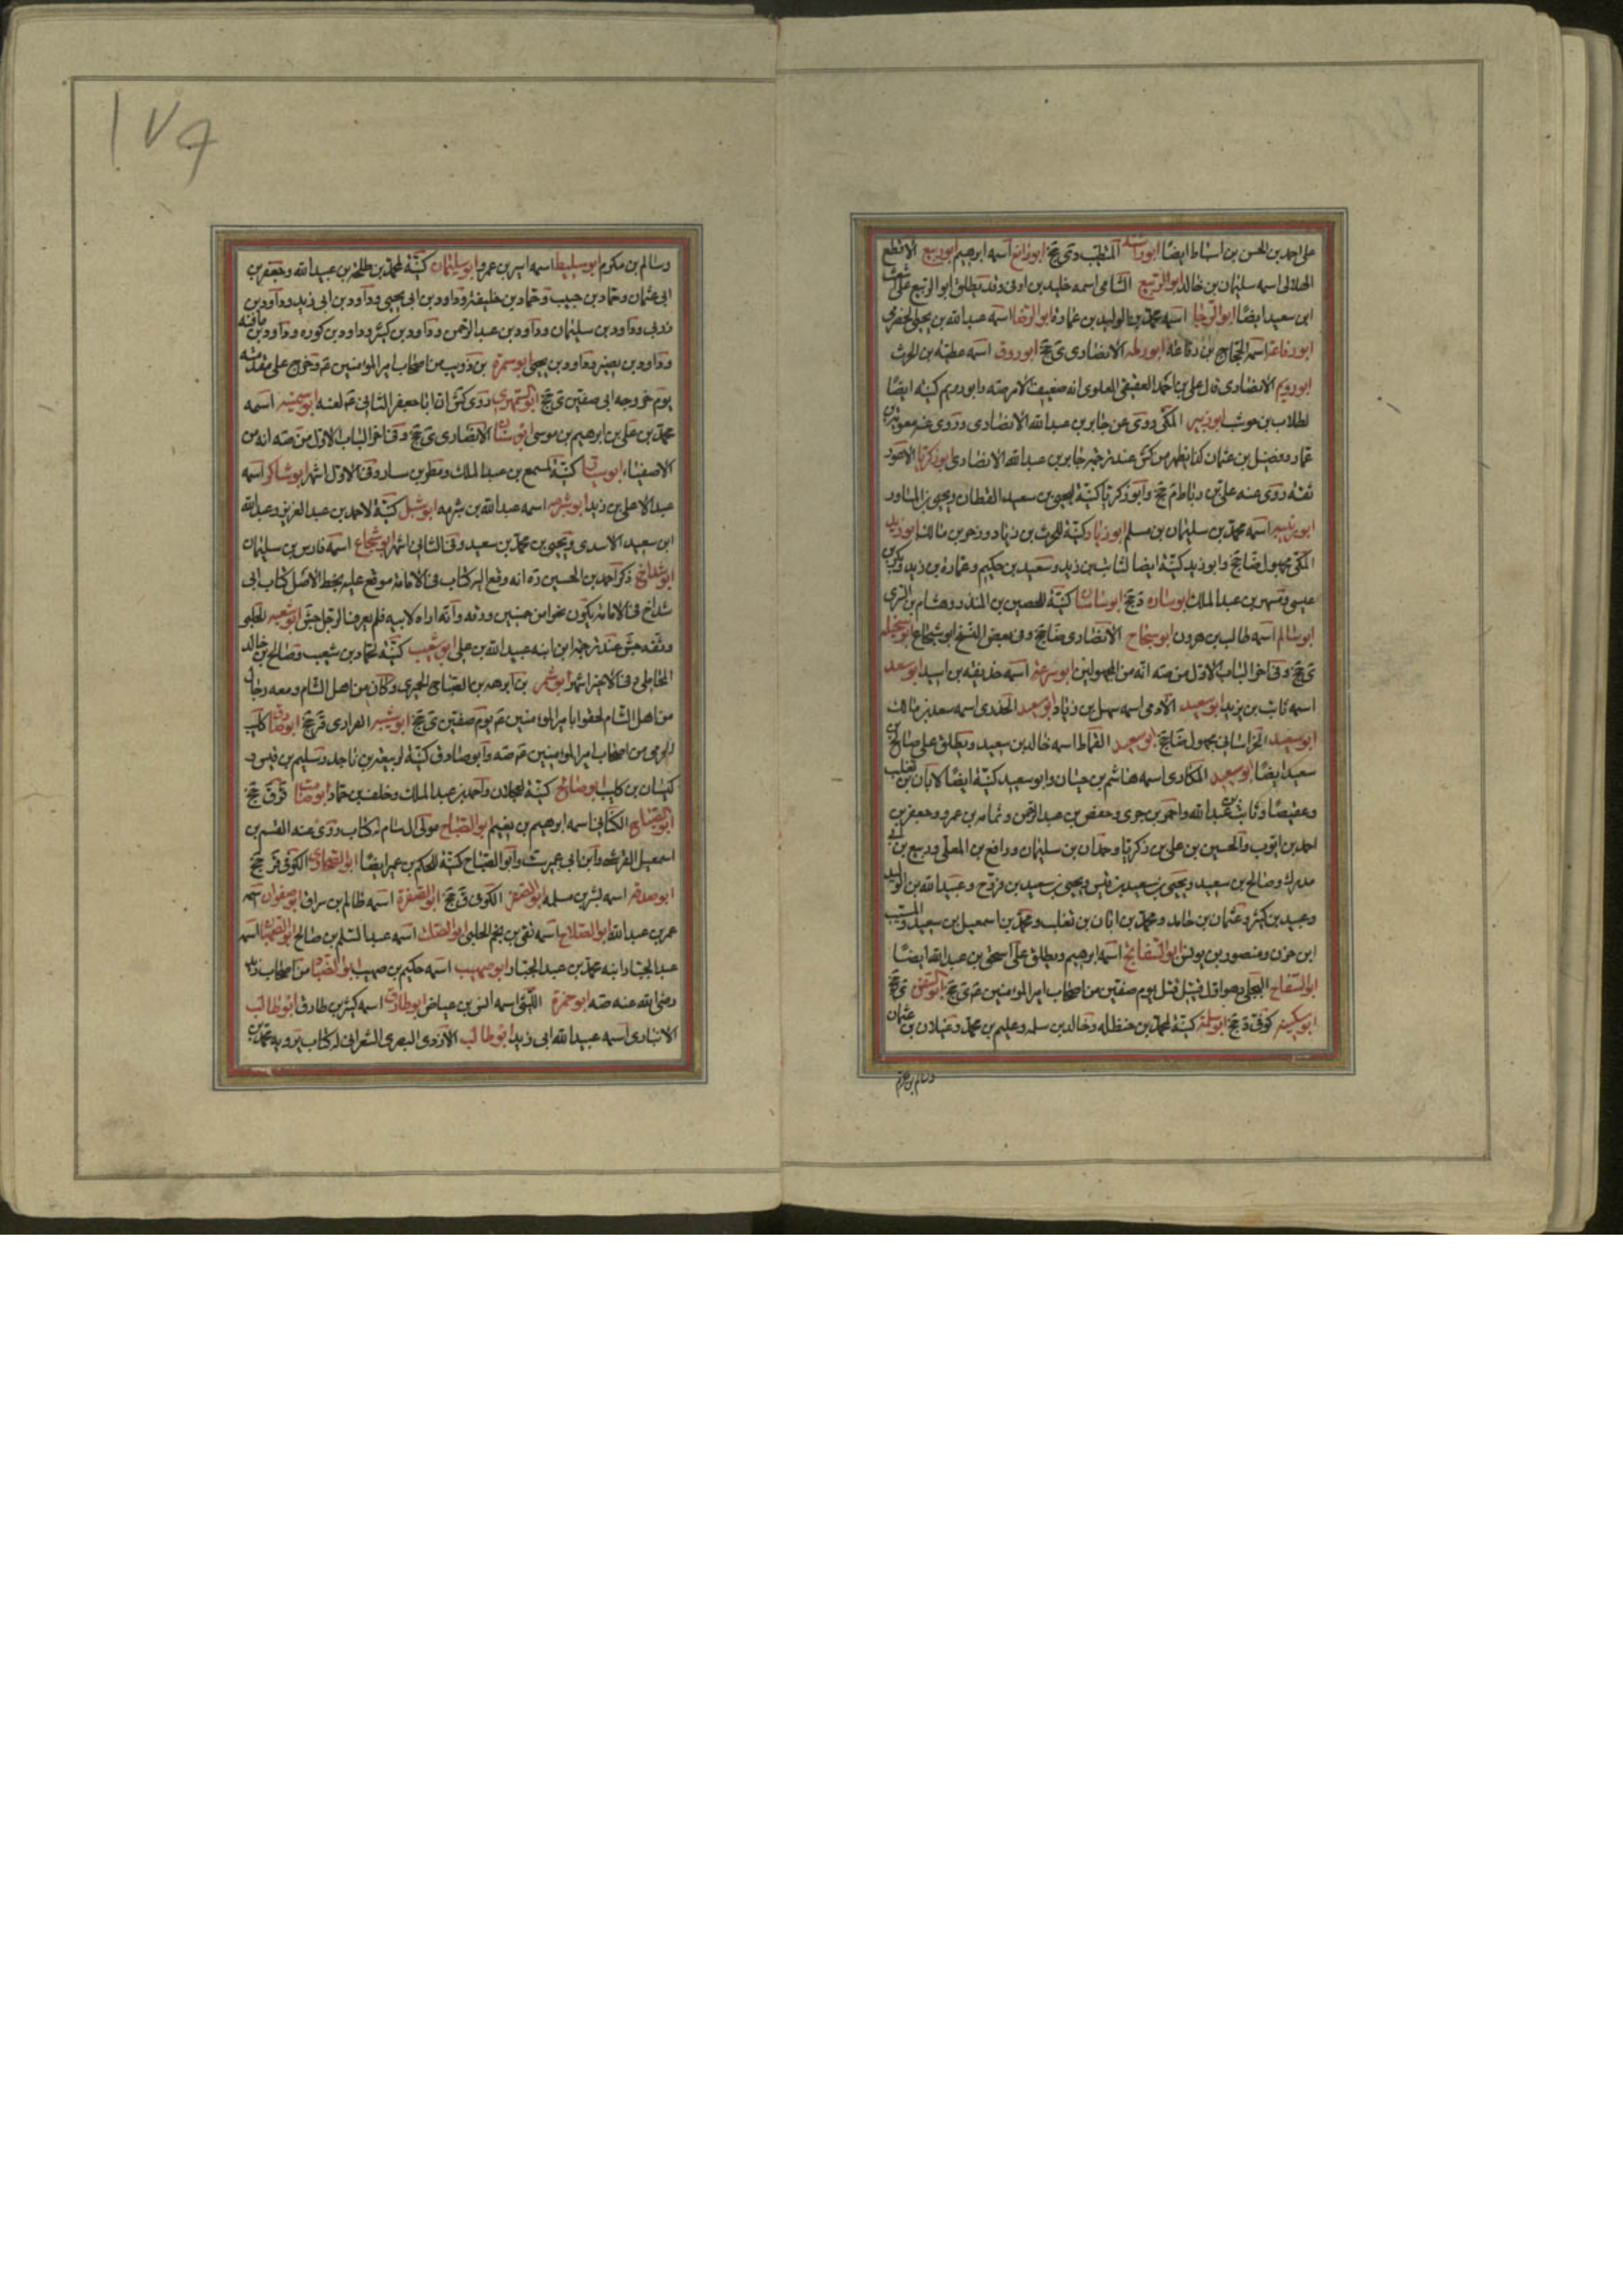 على احمد بن الحسن بن اسباط ايضا ابو رافع اسمه ابرهيم ابو ربيع الاقطع
الهلالى اسمه سليمان بن خالد ابو الربيع الشامى اسمه خليد بن اوفى وقد يطلق ابو الربيع على
ابن سعيد ايضا ابو الرجا اسمه محمد بن الوليد بن عمارة ابو الرضا اسمه عبد الله بن يحيى الحضرمى
ابو رفاعة اسمه الحجاج بن رفاعة ابو رملة الانصارى ى جخ ابو روق اسمه عطية بن الحرث
ابو رويم الانصارى قال على بن احمد العقيقى العلوى انه ضعيف الامر صه وابو رويم كنية ايضا
لطلاب بن حوشب ابو زبير المكى روى عن جابر بن عبد الله الانصارى وروى عنه معوية بن
عمار وفضيل بن عثمان كذا يظهر من كش عند ترجمة جابر بن عبد الله الانصارى ابو زكريا الاعور
ثقة روى عنه على بن رباط م جخ وابو زكريا كنية ليحيى بن سعيد القطان ويحيى بن المساور
اسمه محمد بن سليمان بن مسلم ابو زياد كنية للحرث بن زياد وزحر بن مالك ابو زيد
المكى مجهول ضا جخ وابو زيد كنية ايضا لثابت بن زيد وسعيد بن حكيم وعمارة بن زيد وبكر بن
عيسى ومسهر بن عبد الملك ابو ساره د جخ ابو ساسان كنية للحصين بن المنذر وهشام بن السرى
ابو سالم اسمه طالب بن هرون ابو سجاح الانصارى ضا جخ وفى بعض النسخ ابو شجاع ابو سخيلة
ى جخ وفى اخر الباب الاول من صه انه من المجهولين ابو سريحة اسمه حذيفة بن اسيد ابو سعد
اسمه ثابت بن يزيد ابو سعيد الادمى اسمه سهل بن زياد ابو سعيد الخدرى اسمه سعد بن مالك
ابو سعيد الخراسانى مجهول ضا جخ ابو سعيد القماط اسمه خالد بن سعيد ويطلق على صالح بن
سعيد ايضا ابو سعيد المكارى اسمه هاشم بن حيان وابو سعيد كنية ايضا لابان بن تغلب
وعقيصا وثابت بن عبد الله واحمر بن جرى وحفص بن عبد الرحمن وثمامه بن عمرو وجعفر بن
احمد بن ايوب والحسين بن على بن زكريا وحمدان بن سليمان ورافع بن المعلى وربيع بن ابى
مدرك وصالح بن سعيد ويحيى بن سعيد بن قيس ويحيى بن سعيد بن فروخ وعبيد الله بن الوليد
وعبيد بن كثير وعثمان بن حامد ومحمد بن ابان بن تغلب ومحمد بن اسمعيل بن سعيد والمسيب
ابن حزن ومنصور بن يونس ابو السفاتج اسمه ابرهيم ويطلق على اسحق بن عبد الله ايضا
ابو السفاح البجلى وهو اول قتيل قتل يوم صفين من اصحاب امير المؤمنين ع ى جخ ابو السفر ى جخ
ابو سكينة كوفى د جخ ابو سلمة كنية لمحمد بن حنظله وخالد بن سلمه وعليم بن محمد وغيلان بن عثمان
وسالم بن مكرم
١٧٩
وسالم بن مكرم ابو سليط اسمه اسير بن عمرو ابو سليمان كنية لمحمد بن طلحة بن عبيد الله وجعفر بن
ابى عثمان وحماد بن حبيب وحماد بن خليفة وداود بن ابى يحيى وداود بن ابى زيد وداود بن
زربى وداود بن سليمان وداود بن عبد الرحمن وداود بن كثير وداود بن كوره وداود بن مافنه
وداود بن نصير وداود بن يحيى ابو سمرة بن ذويب من اصحاب امير المؤمنين ع وخرج على مقدمته
يوم خروجه الى صفين ى جخ ابو السمهرى روى كش ان ابا جعفر الثانى ع لعنه ابو سمينة اسمه
محمد بن على بن ابرهيم بن موسى ابو سنان الانصارى ى جخ وفى اخر الباب الاول من صه انه من
الاصفياء ابو سيار كنية لمسمع بن عبد الملك ومطر بن سيار وفى الاول اشهر ابو شاكر اسمه
عبد الاعلى بن زيد ابو شبرمه اسمه عبد الله بن شبرمه ابو شبل كنية لاحمد بن عبد العزيز وعبد الله
ابن سعيد الاسدى ويحيى بن محمد بن سعيد وفى الثانى اشهر ابو شجاع اسمه فارس بن سليمان
ابو شداخ ذكر احمد بن الحسين ره انه وقع اليه كتاب فى الامامة موقع عليه بخط الاصل كتاب ابى
شداخ فى الامامة يكون نحوا من خمسين ورقه وانه اراه لابيه فلم يعرفا الرجل جش ابو شعبه الحلبى
وثقه جش عند ترجمة ابن ابنه عبيد الله بن على ابو شعيب كنية لحماد بن شعيب وصالح بن خالد
المحاملى وفى الاخير اشهر ابو شمر بن ابرهه بن الصباح الحميرى وكان من اهل الشام ومعه رجال
من اهل الشام لحقوا بامير المؤمنين ع يوم صفين ى جخ ابو شيبه الفزارى ق ر جخ ابو صادق كليب
الجرمى من اصحاب امير المؤمنين ع صه وابو صادق كنية لربيعة بن ناجد وسليم بن قيس و
كيسان بن كليب ابو صالح كنية لعجلان واحمد بن عبد الملك وخلف بن حماد ابو صامت ق ر ق جخ
ابو الصباح الكنانى اسمه ابرهيم بن نعيم ابو الصباح مولى ال سام له كتاب روى عنه القسم بن
اسمعيل القرشى وابن ابى عمير ست وابو الصباح كنية للحكم بن عمير ايضا ابو الصحارى الكوفى ق ر جخ
ابو صدقة اسمه بشر بن مسلمه ابو الصقر الكوفى ق ر جخ ابو الصفرة اسمه ظالم بن سراق ابو صفوان اسمه
عمر بن عبد الله ابو الصلاح اسمه تقى بن نجم الحلبى ابو الصلت اسمه عبد السلم بن صالح ابو الصهبان اسمه
عبد الجبار وابنه محمد بن عبد الجبار ابو صهيب اسمه حكيم بن صهيب ابو الضبار من اصحاب زيد
رضى الله عنه صه ابو ضمرة الليثى اسمه انس بن عياض ابو طارق اسمه كثير بن طارق ابو طالب
الانبارى اسمه عبيد الله ابى زيد ابو طالب الازدى البصرى الشعرانى له كتاب يرويه محمد بن